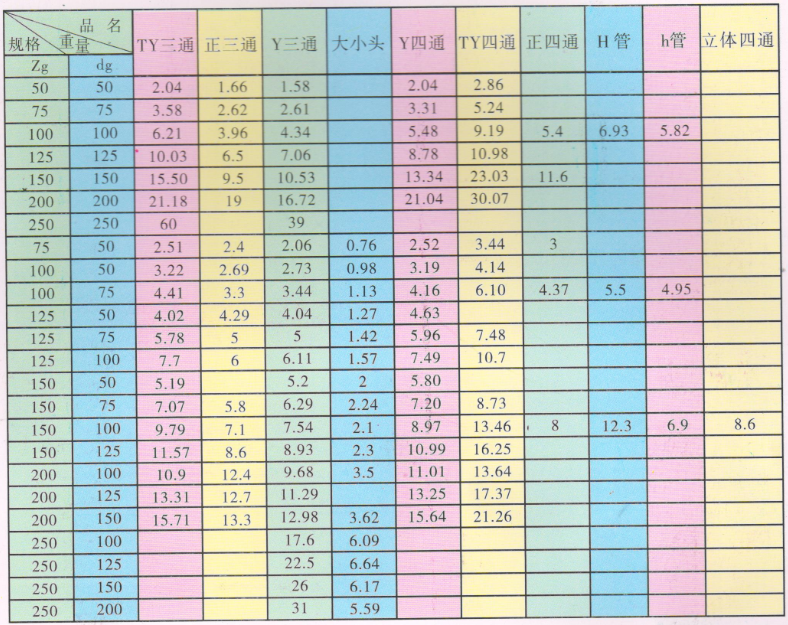 品 名
规格 重量 TY三通 正三通 Y三通 大小头 Y四通 TY四通 正四通 H 管 h管 立体四通
Zg dg
50 50 2.04 1.66 1.58 2.04 2.86
75 75 3.58 2.62 2.61 3.31 5.24
100 100 6.21 3.96 4.34 5.48 9.19 5.4 6.93 5.82
125 125 10.03 6.5 7.06 8.78 10.98
150 150 15.50 9.5 10.53 13.34 23.03 11.6
200 200 21.18 19 16.72 21.04 30.07
250 250 60 39
75 50 2.51 2.4 2.06 0.76 2.52 3.44 3
100 50 3.22 2.69 2.73 0.98 3.19 4.14
100 75 4.41 3.3 3.44 1.13 4.16 6.10 4.37 5.5 4.95
125 50 4.02 4.29 4.04 1.27 4.63
125 75 5.78 5 5 1.42 5.96 7.48
125 100 7.7 6 6.11 1.57 7.49 10.7
150 50 5.19 5.2 2 5.80
150 75 7.07 5.8 6.29 2.24 7.20 8.73
150 100 9.79 7.1 7.54 2.1 8.97 13.46 8 12.3 6.9 8.6
150 125 11.57 8.6 8.93 2.3 10.99 16.25
200 100 10.9 12.4 9.68 3.5 11.01 13.64
200 125 13.31 12.7 11.29 13.25 17.37
200 150 15.71 13.3 12.98 3.62 15.64 21.26
250 100 17.6 6.09
250 125 22.5 6.64
250 150 26 6.17
250 200 31 5.59